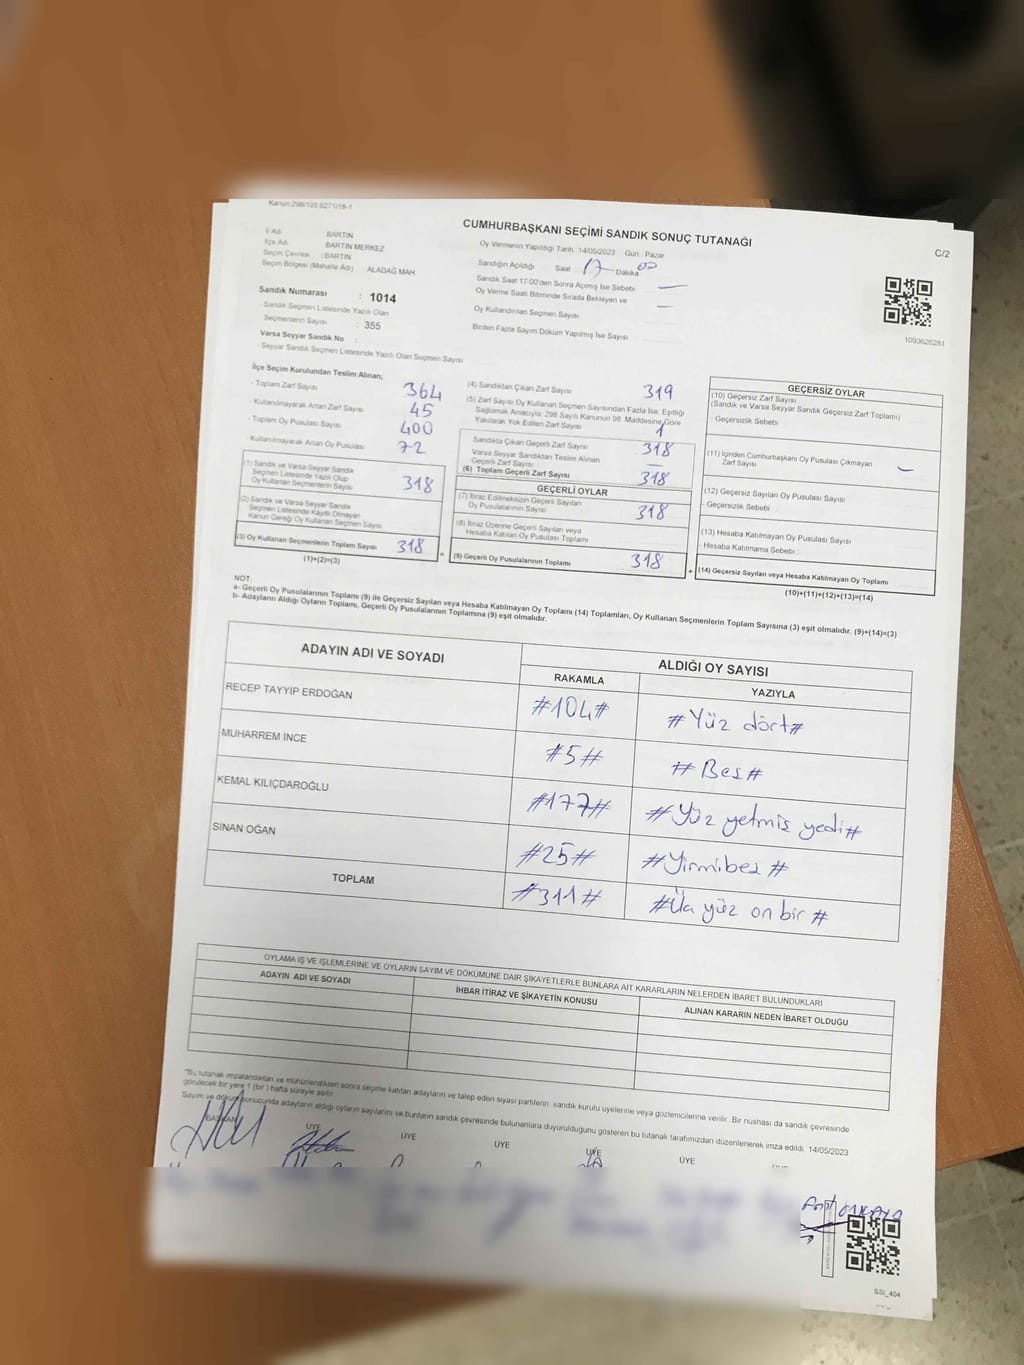 Kanun:298/105;6271/18-1
CUMHURBAŞKANI SEÇİMİ SANDIK SONUÇ TUTANAĞI
C/2
İl Adı : BARTIN
İlçe Adı : BARTIN MERKEZ
Seçim Çevresi : BARTIN
Seçim Bölgesi (Mahalle Adı) : ALADAĞ MAH
Sandık Numarası : 1014
- Sandık Seçmen Listesinde Yazılı Olan
Seçmenlerin Sayısı : 355
Varsa Seyyar Sandık No :
- Seyyar Sandık Seçmen Listesinde Yazılı Olan Seçmen Sayısı
Oy Vermenin Yapıldığı Tarih :14/05/2023 Gün : Pazar
Sandığın Açıldığı Saat 17 Dakika 00
Sandık Saat 17:00'den Sonra Açılmış İse Sebebi —
Oy Verme Saati Bitiminde Sırada Bekleyen ve
Oy Kullandırılan Seçmen Sayısı —
Birden Fazla Sayım Döküm Yapılmış İse Sayısı
1093626281
İlçe Seçim Kurulundan Teslim Alınan;
- Toplam Zarf Sayısı 364
- Kullanılmayarak Artan Zarf Sayısı 45
- Toplam Oy Pusulası Sayısı 400
- Kullanılmayarak Artan Oy Pusulası 72
(1) Sandık ve Varsa Seyyar Sandık
Seçmen Listesinde Yazılı Olup
Oy Kullanan Seçmenlerin Sayısı 318
(2) Sandık ve Varsa Seyyar Sandık
Seçmen Listesinde Kayıtlı Olmayan
Kanun Gereği Oy Kullanan Seçmen Sayısı
(3) Oy Kullanan Seçmenlerin Toplam Sayısı 318
(1)+(2)=(3)
=
(4) Sandıktan Çıkan Zarf Sayısı 319
(5) Zarf Sayısı Oy Kullanan Seçmen Sayısından Fazla İse, Eşitliği
Sağlamak Amacıyla; 298 Sayılı Kanunun 98. Maddesine Göre
Yakılarak Yok Edilen Zarf Sayısı 1
Sandıkta Çıkan Geçerli Zarf Sayısı 318
Varsa Seyyar Sandıktan Teslim Alınan
Geçerli Zarf Sayısı —
(6) Toplam Geçerli Zarf Sayısı 318
GEÇERLİ OYLAR
(7) İtiraz Edilmeksizin Geçerli Sayılan
Oy Pusulalarının Sayısı 318
(8) İtiraz Üzerine Geçerli Sayılan veya
Hesaba Katılan Oy Pusulası Toplamı
(9) Geçerli Oy Pusulalarının Toplamı 318
+
GEÇERSİZ OYLAR
(10) Geçersiz Zarf Sayısı
(Sandık ve Varsa Seyyar Sandık Geçersiz Zarf Toplamı)
- Geçersizlik Sebebi
(11) İçinden Cumhurbaşkanı Oy Pusulası Çıkmayan
Zarf Sayısı —
(12) Geçersiz Sayılan Oy Pusulası Sayısı
- Geçersizlik Sebebi
(13) Hesaba Katılmayan Oy Pusulası Sayısı
- Hesaba Katılmama Sebebi
(14) Geçersiz Sayılan veya Hesaba Katılmayan Oy Toplamı
(10)+(11)+(12)+(13)=(14)
NOT:
a- Geçerli Oy Pusulalarının Toplamı (9) ile Geçersiz Sayılan veya Hesaba Katılmayan Oy Toplamı (14) Toplamları, Oy Kullanan Seçmenlerin Toplam Sayısına (3) eşit olmalıdır. (9)+(14)=(3)
b- Adayların Aldığı Oyların Toplamı, Geçerli Oy Pusulalarının Toplamına (9) eşit olmalıdır.
ADAYIN ADI VE SOYADI
ALDIĞI OY SAYISI
RAKAMLA YAZIYLA
RECEP TAYYİP ERDOĞAN #104# #Yüz dört#
MUHARREM İNCE #5# #Bes#
KEMAL KILIÇDAROĞLU #177# #Yüz yetmiş yedi#
SİNAN OĞAN #25# #Yirmibeş#
TOPLAM #311# yüz on bir #
OYLAMA İŞ VE İŞLEMLERİNE VE OYLARIN SAYIM VE DÖKÜMÜNE DAİR ŞİKAYETLERLE BUNLARA AİT KARARLARIN NELERDEN İBARET BULUNDUKLARI
ADAYIN ADI VE SOYADI
İHBAR İTİRAZ VE ŞİKAYETİN KONUSU
ALINAN KARARIN NEDEN İBARET OLDUĞU
*Bu tutanak imzalandıktan ve mühürlendikten sonra seçime katılan adayların ve talep eden siyasi partilerin sandık kurulu üyelerine veya gözlemcilerine verilir. Bir nushası da sandık çevresinde
görülecek bir yere 1 (bir ) hafta süreyle asılır.
Sayım ve döküm sonucunda adayların aldığı oyların sayılarını ve bunların sandık çevresinde bulunanlara duyurulduğunu gösteren bu tutanak tarafımızdan düzenlenerek imza edildi. 14/05/2023
BAŞKAN ÜYE ÜYE ÜYE ÜYE ÜYE
SSI_404